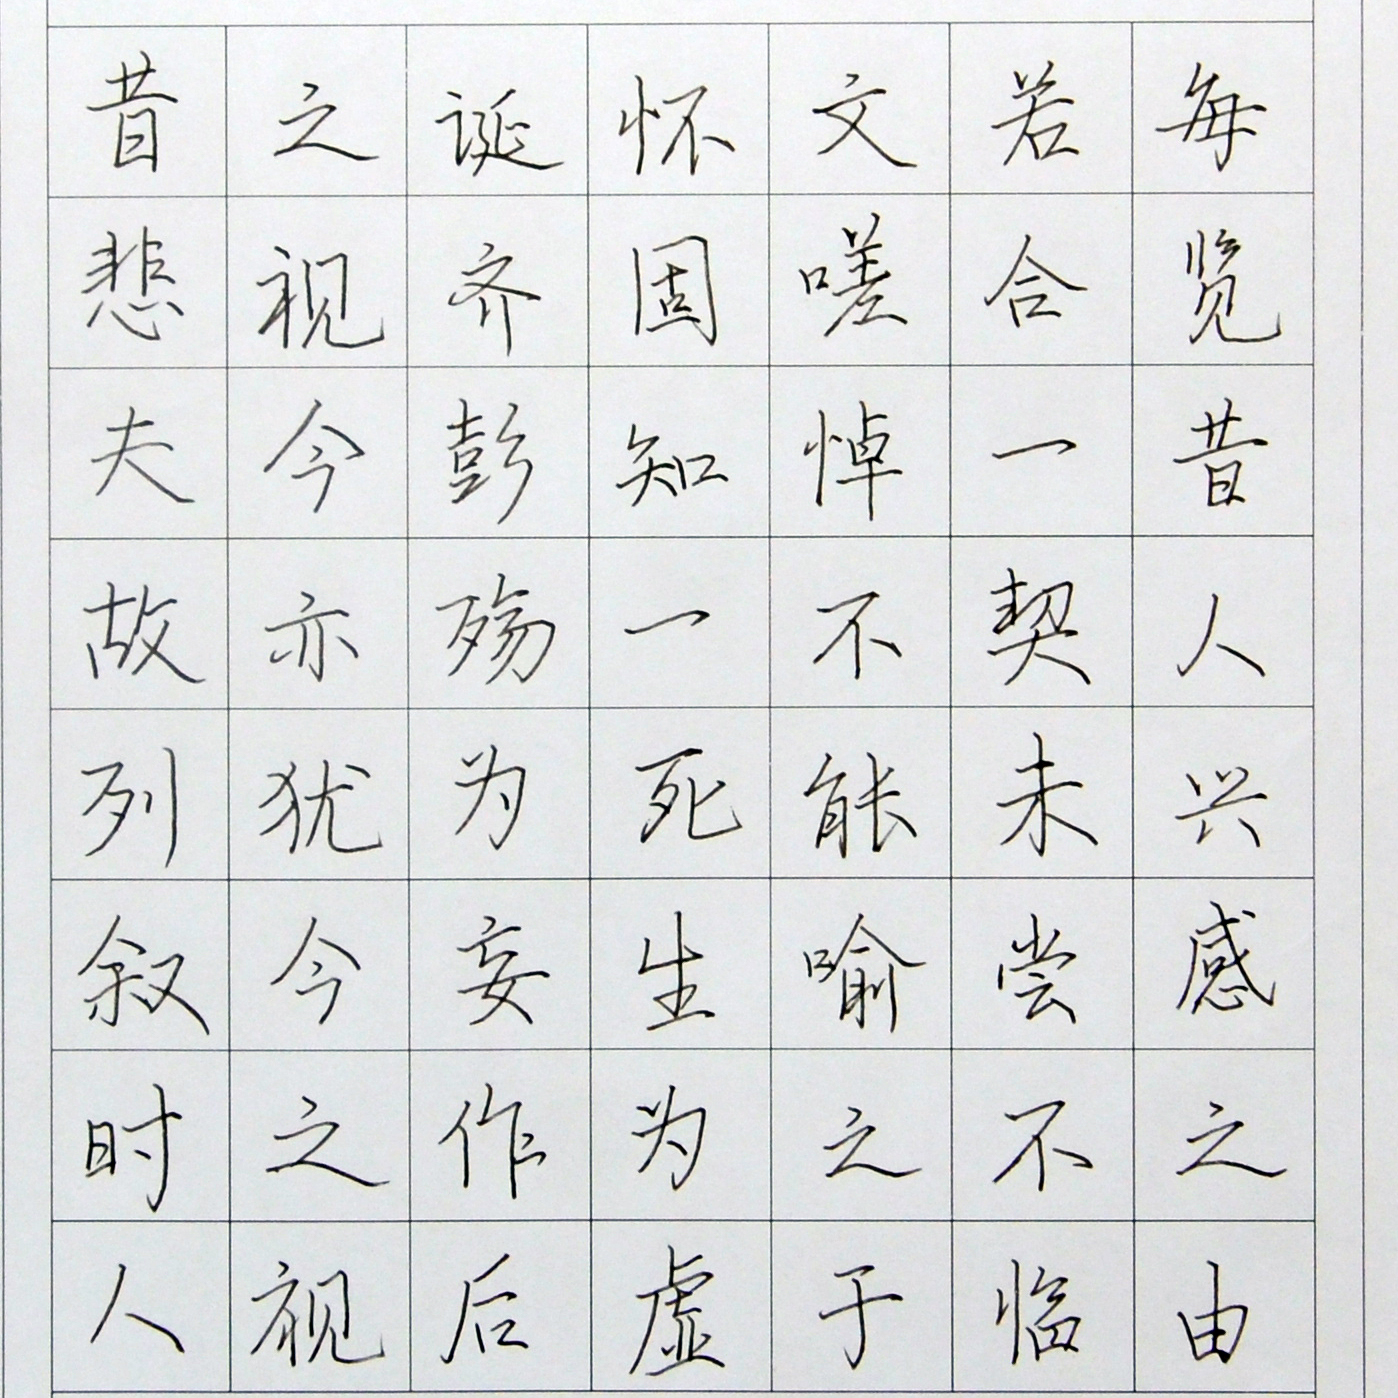 每览昔人兴感之由
若合一契未尝不临
文嗟悼不能喻之于
怀固知一死生为虚
诞齐彭殇为妄作后
之视今亦犹今之视
昔悲夫故列叙时人